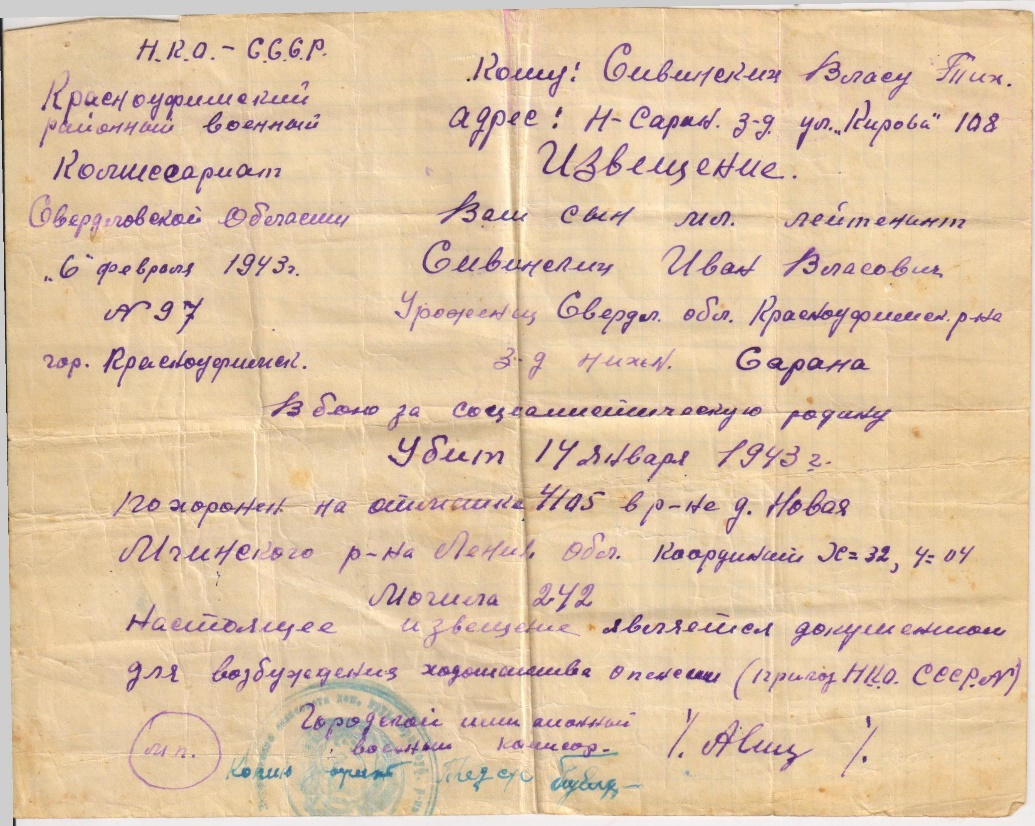 Н.К.О. - С.С.С.Р.
Красноуфимский
районный военный
Комиссариат
Свердловской Области
„6" февраля 1943г.
N 97
гор. Красноуфимск.
Кому: Сивинских Власу Тих.
адрес: Н-Саран. з-д. ул. „Кирова" 108
Извещение.
Ваш сын мл. лейтенант
Сивинских Иван Власович
Уроженец Свердл. обл. Красноуфимск. р-на
з-д нижн. Сарана
В бою за социалистическую родину
Убит 14 января 1943г.
Похоронен на 4105 в р-не д. Новая
Мгинского р-на Ленин. Обл. Коордиений X=32, Y=04
Могила 242
Настоящее извещение является документом
для возбуждения ходотайства о пенсии (приказ НКО. СССР. N)
Городской или районный
военный комиссар. /. /.
м.п.
Копию